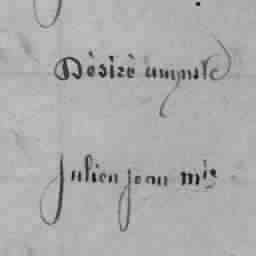 Désiré auguste
Julien jean mis